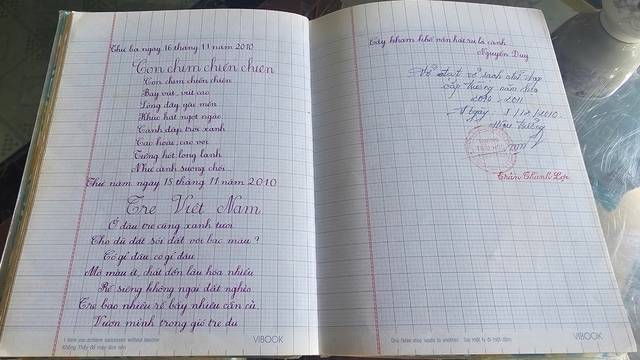 Thứ ba ngày 16 tháng 11 năm 2010
Con chim chiền chiện
Con chim chiền chiện
Bay vút, vút cao
Lòng đầy yêu mến
Khúc hát ngọt ngào
Cánh đập trời xanh
Cao hoài, cao vợi
Tiếng hót long lanh
Như cành sương chói
Thứ năm ngày 18 tháng 11 năm 2010
Tre Việt Nam
Ở đâu tre cũng xanh tươi
Cho dù đất sỏi đất vôi bạc màu?
Có gì đâu, có gì đâu
Mỡ màu ít, chắt dồn lâu hóa nhiều
Rễ siêng không ngại đất nghèo
Tre bao nhiêu rễ bấy nhiêu cần cù
Vươn mình trong gió tre đu
I dare you achieve successes without teacher
Không Thầy đố mày làm nên
VIBOOK
Cây kham khổ vẫn hát ru lá cành
Nguyễn Duy
Vở đạt vở sạch chữ đẹp
cấp trường năm học
2010 - 2011
Ngày 1/12/2010
Hiệu trưởng
TIỂU HỌC
Trần Thanh
One false step leads to another : Sai một ly đi một dặm.
VIBOOK